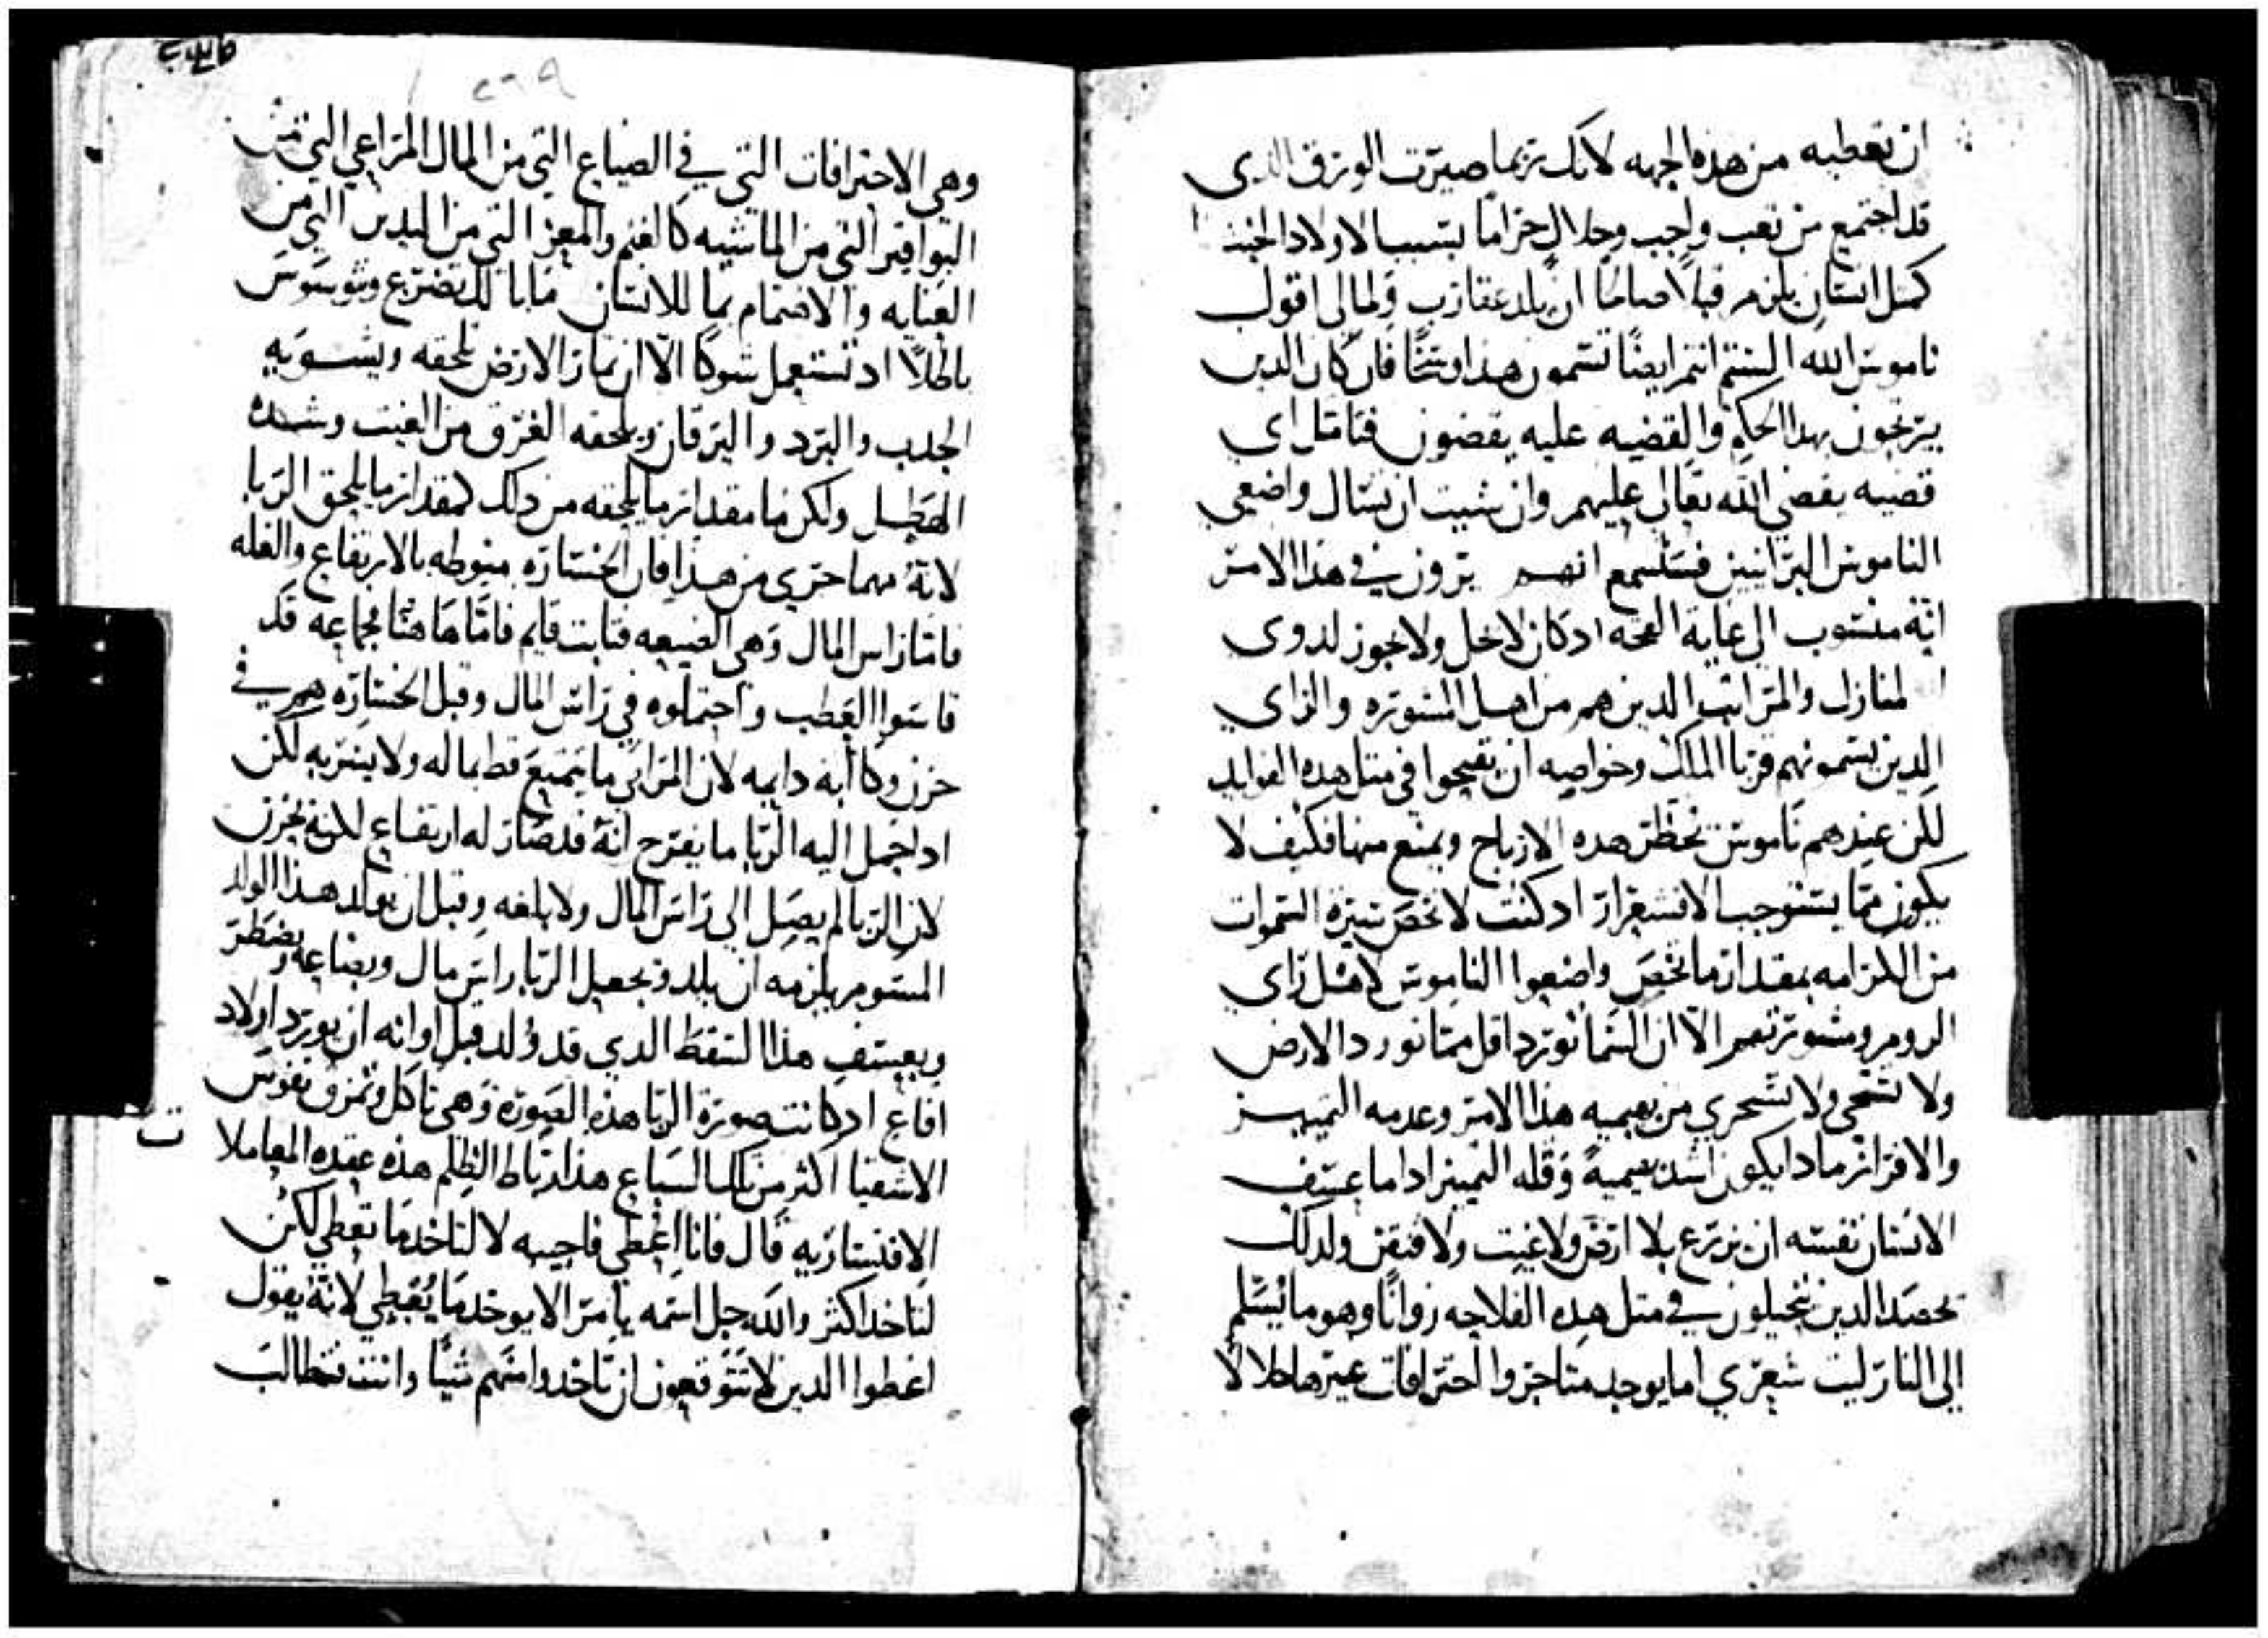 ان تعطيه من هذه الجهه لانك ربما صيرت الورق الدي
قد اجتمع من تعب واجب وحلال حراما بسبب الاولاد الخبثا
كمثل انسان يلزم قبالا صامتا ان يلد عقارب ولمالي اقول
ناموس الله الستم انتم ايضًا تسمون هذا وسخًا فان كان الدين
يرتجون بهدا الحكم والقضيه عليه يقضون فتامل اي
قضيه يقضي الله تعالى عليهم وان شيت ان تسال واضعي
الناموس البرانيين فستسمع انهم يرون في هذا الامر
انه منسوب الى غاية القحه ادكان لا يحل ولا يجوز لدوي
المنازل والمراتب الدين هم من اهل المشوره والراي
الدين يسمونهم قربا الملك وخواصه ان يقبحوا في مثل هده الفوايد
لكن عندهم ناموس يحظر هده الارباح ويمنع منها فكيف لا
يكون مما يستوجب الاقشعرار ادكنت لا تخص سيرة السموات
من الكرامه بمقدار ما تخص واضعوا الناموس لاهل راي
الروم ومشورتهم الا ان السما تورد اقل مما تورد الارض
ولا تستحي ولا تستحري من بهيميه هذا الامر وعدمه التمييز
والافراز مادا يكون اشد بهيمية وقله التمييز ادا ما عسف
الانسان نفسه ان يزرع بلا ارض ولا غيث ولا فدن ولدلك
يحصد الدين يتحيلون في مثل هده الفلاحه زوانًا وهو ما يسلم
الى النار ليت شعري اما يوجد متاجر واحترافات غيرها حلالا
وهي الاحترافات التي في الضياع التي من المال المراعي التي من
البواقير التي من الماشيه كالغنم والمعز التي من اليدين التي من
العنايه والاهتمام بما للانسان ما بالك تضرع وتوسوس
باطلًا اد تستعمل شوكا الا ان ثمار الارض يلحقه ويشويه
الجدب والبرد واليرقان ويلحقه الغرق من الغيث وشده
الهطيل ولكن ما مقدار ما يلحقه من دلك كمقدار ما يلحق الربا
لانه مهما جري من هدا فان الخساره منوطه بالارتفاع والغله
فاما راس المال وهي الضيعه فثابت قايم فاما هاهنا فجماعه قد
قاسوا العطب واحتملوه في راس المال وقبل الخساره هم في
حزن وكاابه دايمه لان المرابي ما يتمتع قط بماله ولا يسر به لكن
ادا حمل اليه الربا ما يفرح انه قد صار له ارتفاع لكنه يحزن
لان الربا لم يصل الى راس المال ولا بلغه وقبل ان يولد هدا الولد
المشوم يلزمه ان يلد ويجعل الربا راس مال وبضاعه ويضطر
ويعسف هذا السقط الدي قد ولد قبل اوانه ان يورد اولاد
افاع ادكانت صورة الربا هذه الصوره وهي تاكل وتمزق نفوس
الاشقيا اكثر من تلك السباع هذا رباط الظلم هذه عقده المعاملات
الاقتسارية قال فانا اعطي فاجيبه لا لتاخد ما تعطي لكن
لتاخد اكثر والله جل اسمه يامر الا يوخد ما يُعطي لانه يقول
اعطوا الدين لا تتوقعون ان تاخدوا منهم شيًا وانت فتطالب